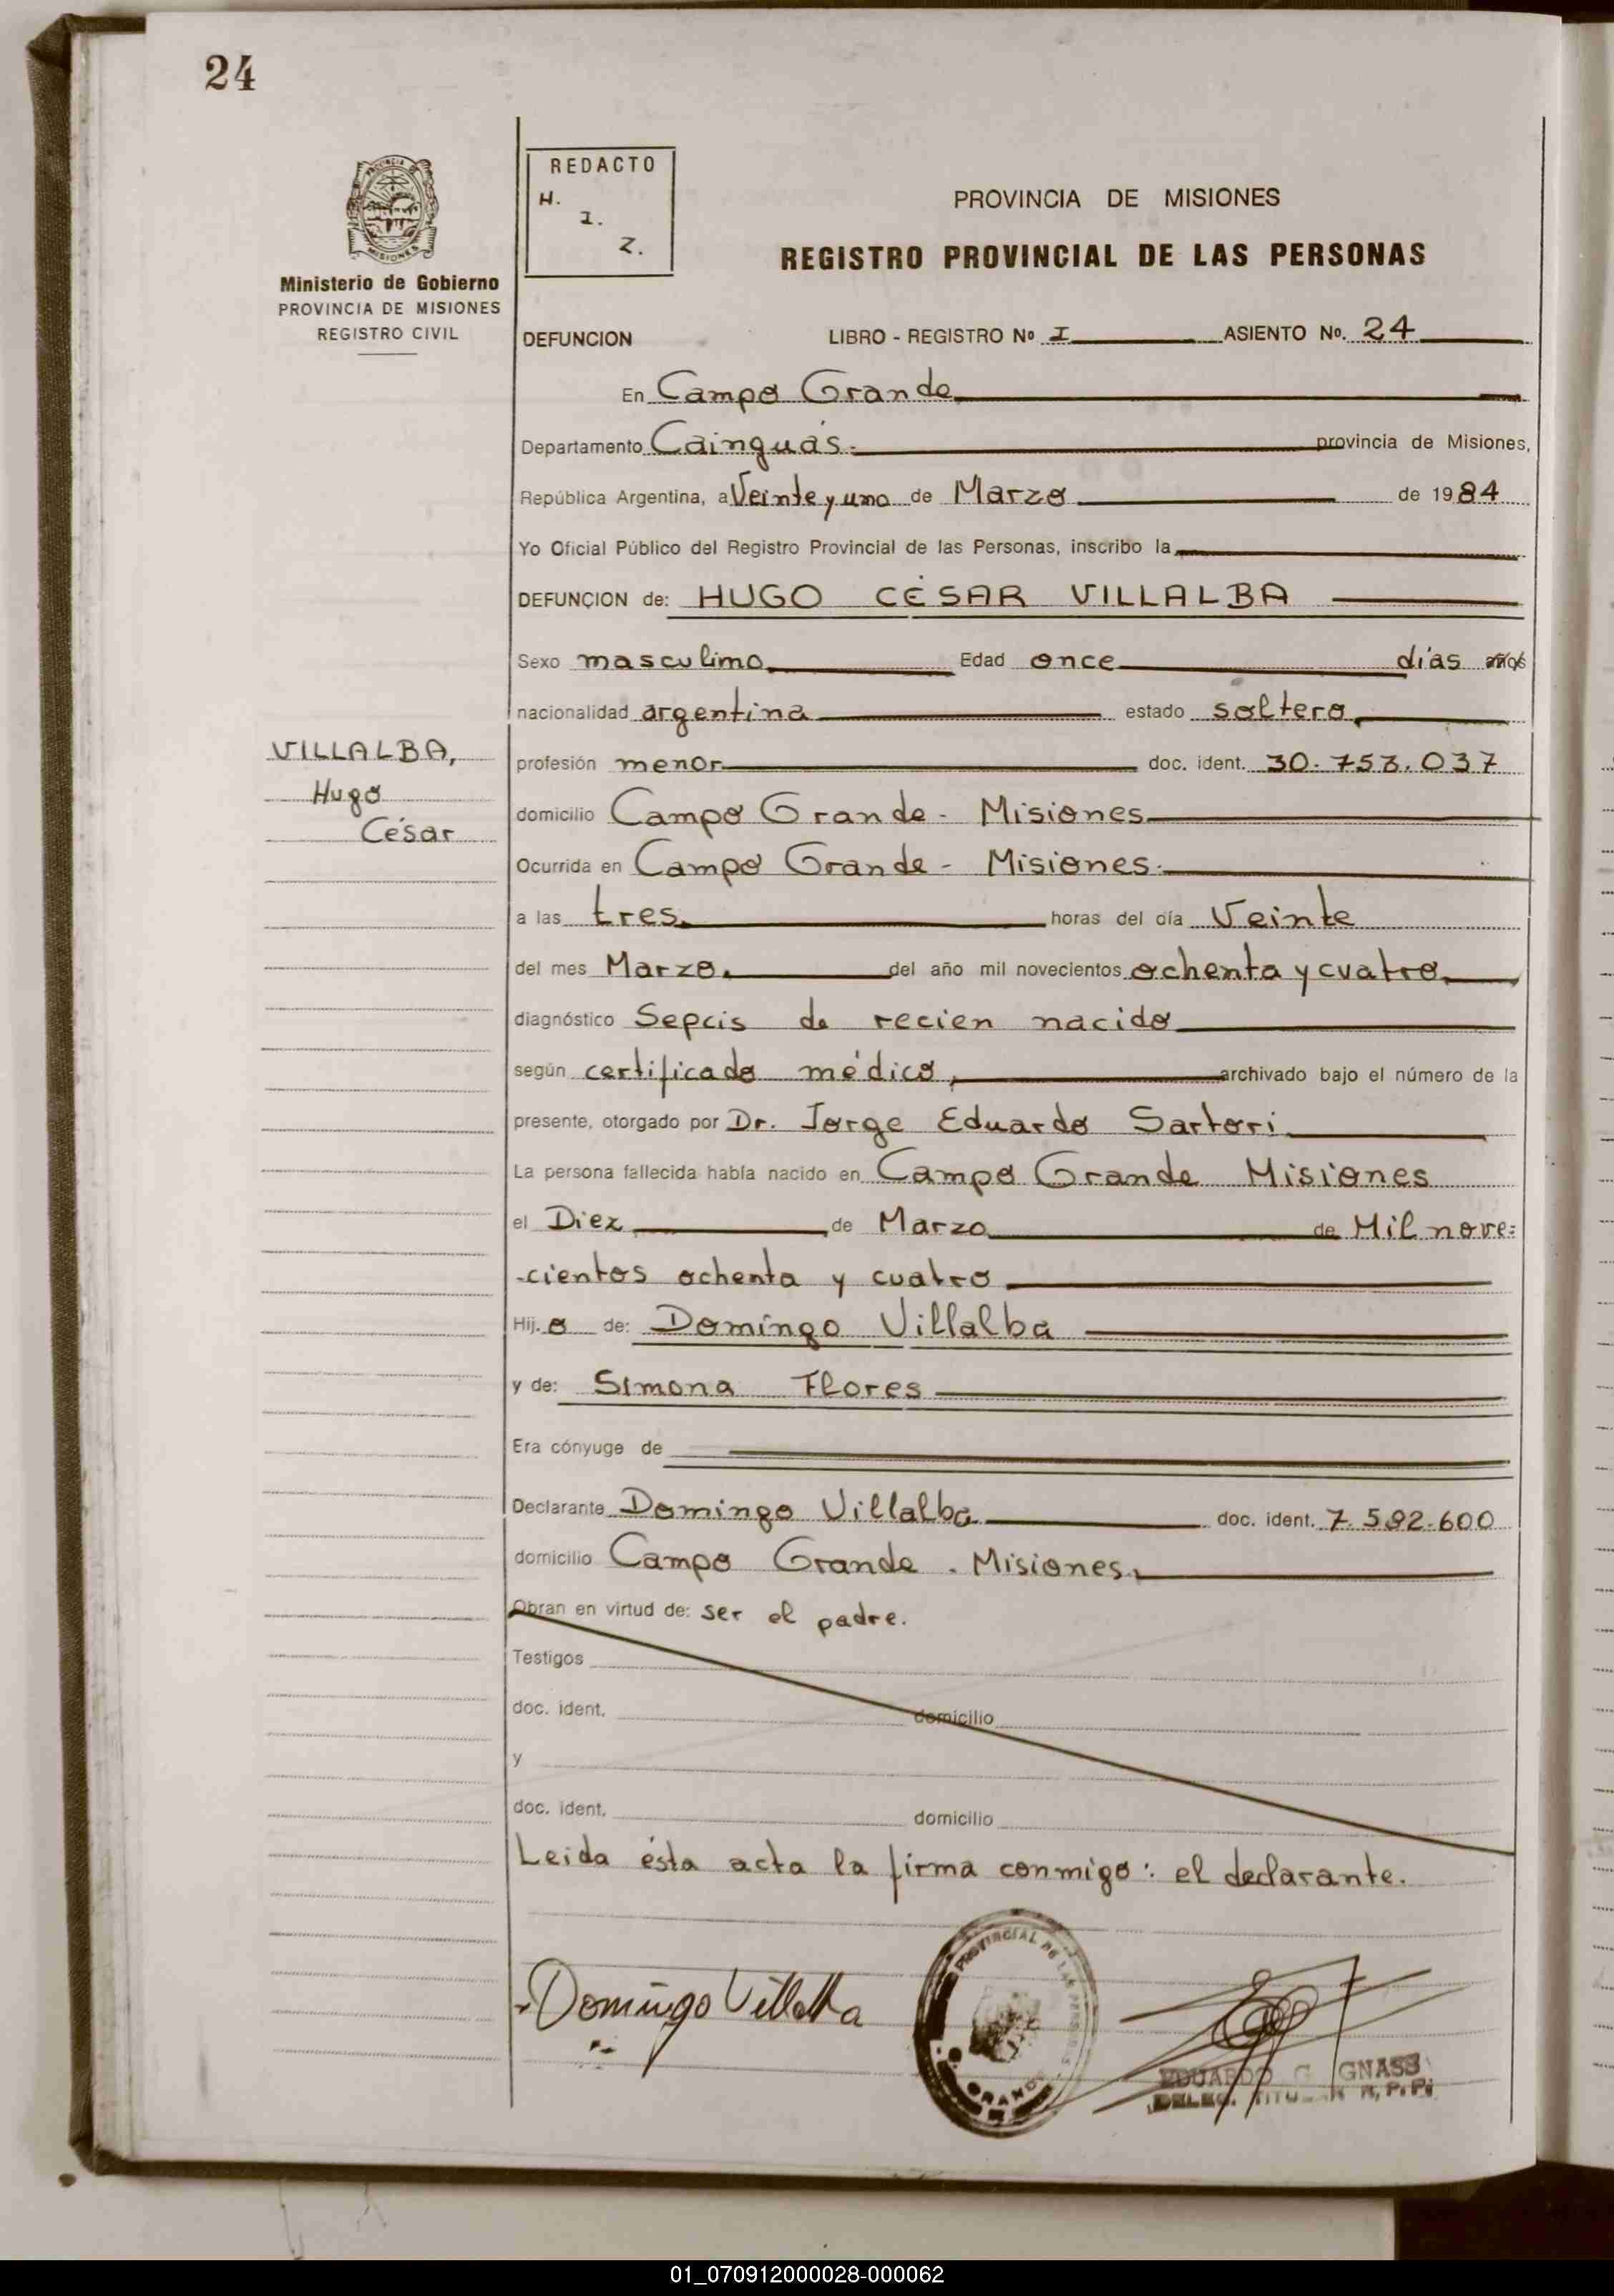 24
REDACTO
H.
I.
Z.
PROVINCIA DE MISIONES
REGISTRO PROVINCIAL DE LAS PERSONAS
PROVINCIA
MISIONES
Ministerio de Gobierno
PROVINCIA DE MISIONES
REGISTRO CIVIL
DEFUNCION LIBRO - REGISTRO Nº I ASIENTO Nº. 24
En Campo Grande
Departamento Cainguás. provincia de Misiones,
República Argentina, a Veinte y uno de Marzo de 1984
Yo Oficial Público del Registro Provincial de las Personas, inscribo la
DEFUNCION de: HUGO CÉSAR VILLALBA
Sexo masculino Edad once días años
nacionalidad argentina estado soltero
VILLALBA,
Hugo
César
profesión menor doc. ident. 30.753.037
domicilio Campo Grande - Misiones
Ocurrida en Campo Grande - Misiones.
a las tres horas del día Veinte
del mes Marzo. del año mil novecientos ochenta y cuatro
diagnóstico Sepcis de recien nacido
según certificado médico, archivado bajo el número de la
presente, otorgado por Dr. Jorge Eduardo Sartori
La persona fallecida había nacido en Campo Grande Misiones
el Diez de Marzo de Mil nove=
-cientos ochenta y cuatro
Hij.o de: Domingo Villalba
y de: Simona Flores
Era cónyuge de
Declarante Domingo Villalba doc. ident. 7.592.600
domicilio Campo Grande - Misiones.
Obran en virtud de: ser el padre.
Testigos
doc. ident. domicilio
y
doc. ident. domicilio
Leida ésta acta la firma conmigo: el declarante.
Domingo Villalba
PROVINCIAL DE LAS PERSONAS
GRANDE
EDUARDO G. GNASS
DELEG. TITULAR R.P.P.
01_070912000028-000062